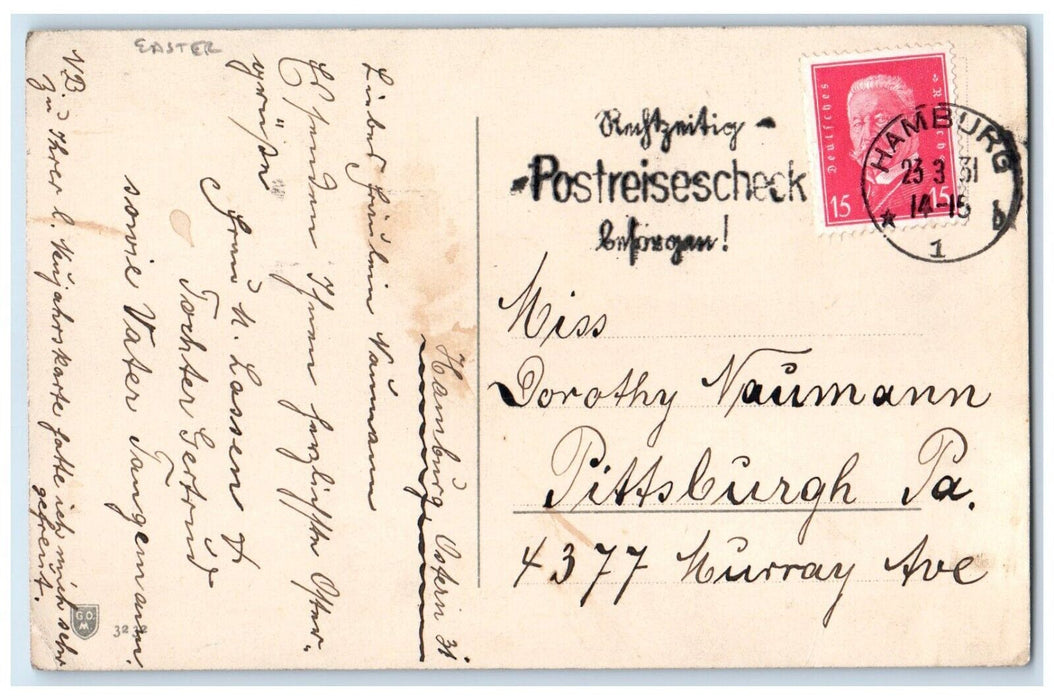 EASTER
Hamburg, Ostern 31
Liebes Fräulein Naumann
Es senden Ihnen herzlichste Oster-
grüsse
Frau M. Lassen &
Tochter Gertrud
sowie Vater Tangermann.
NB. Zu Ihrer l. Neujahrskarte hatte ich mich sehr
gefreut.
G.O.M
32
Rechtzeitig -
Postreisescheck
besorgen!
Deutsches Reich
15 15
HAMBURG
23 3 31
14-15
* 1 b
Miss
Dorothy Naŭmann
Pittsbŭrgh Pa.
4377 Mŭrray Ave